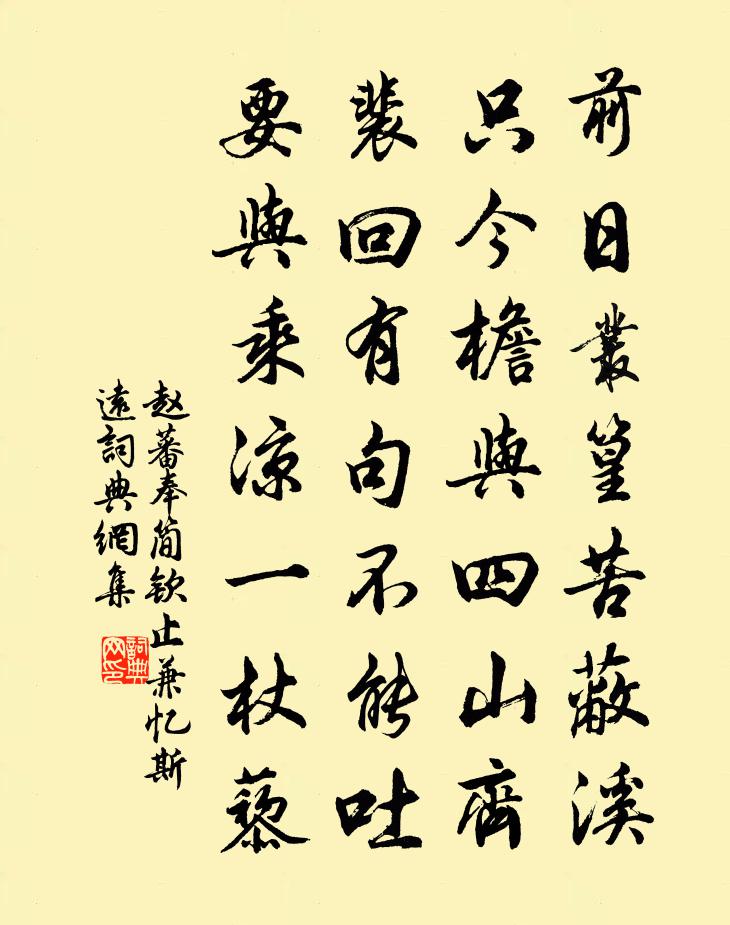 前日叢篁苦蔽溪
只今檐與四山齊
裴回有句不能吐
要與乘凉一杖藜
赵蕃奉简钦止兼忆斯
遠詞典網集
詞典网印